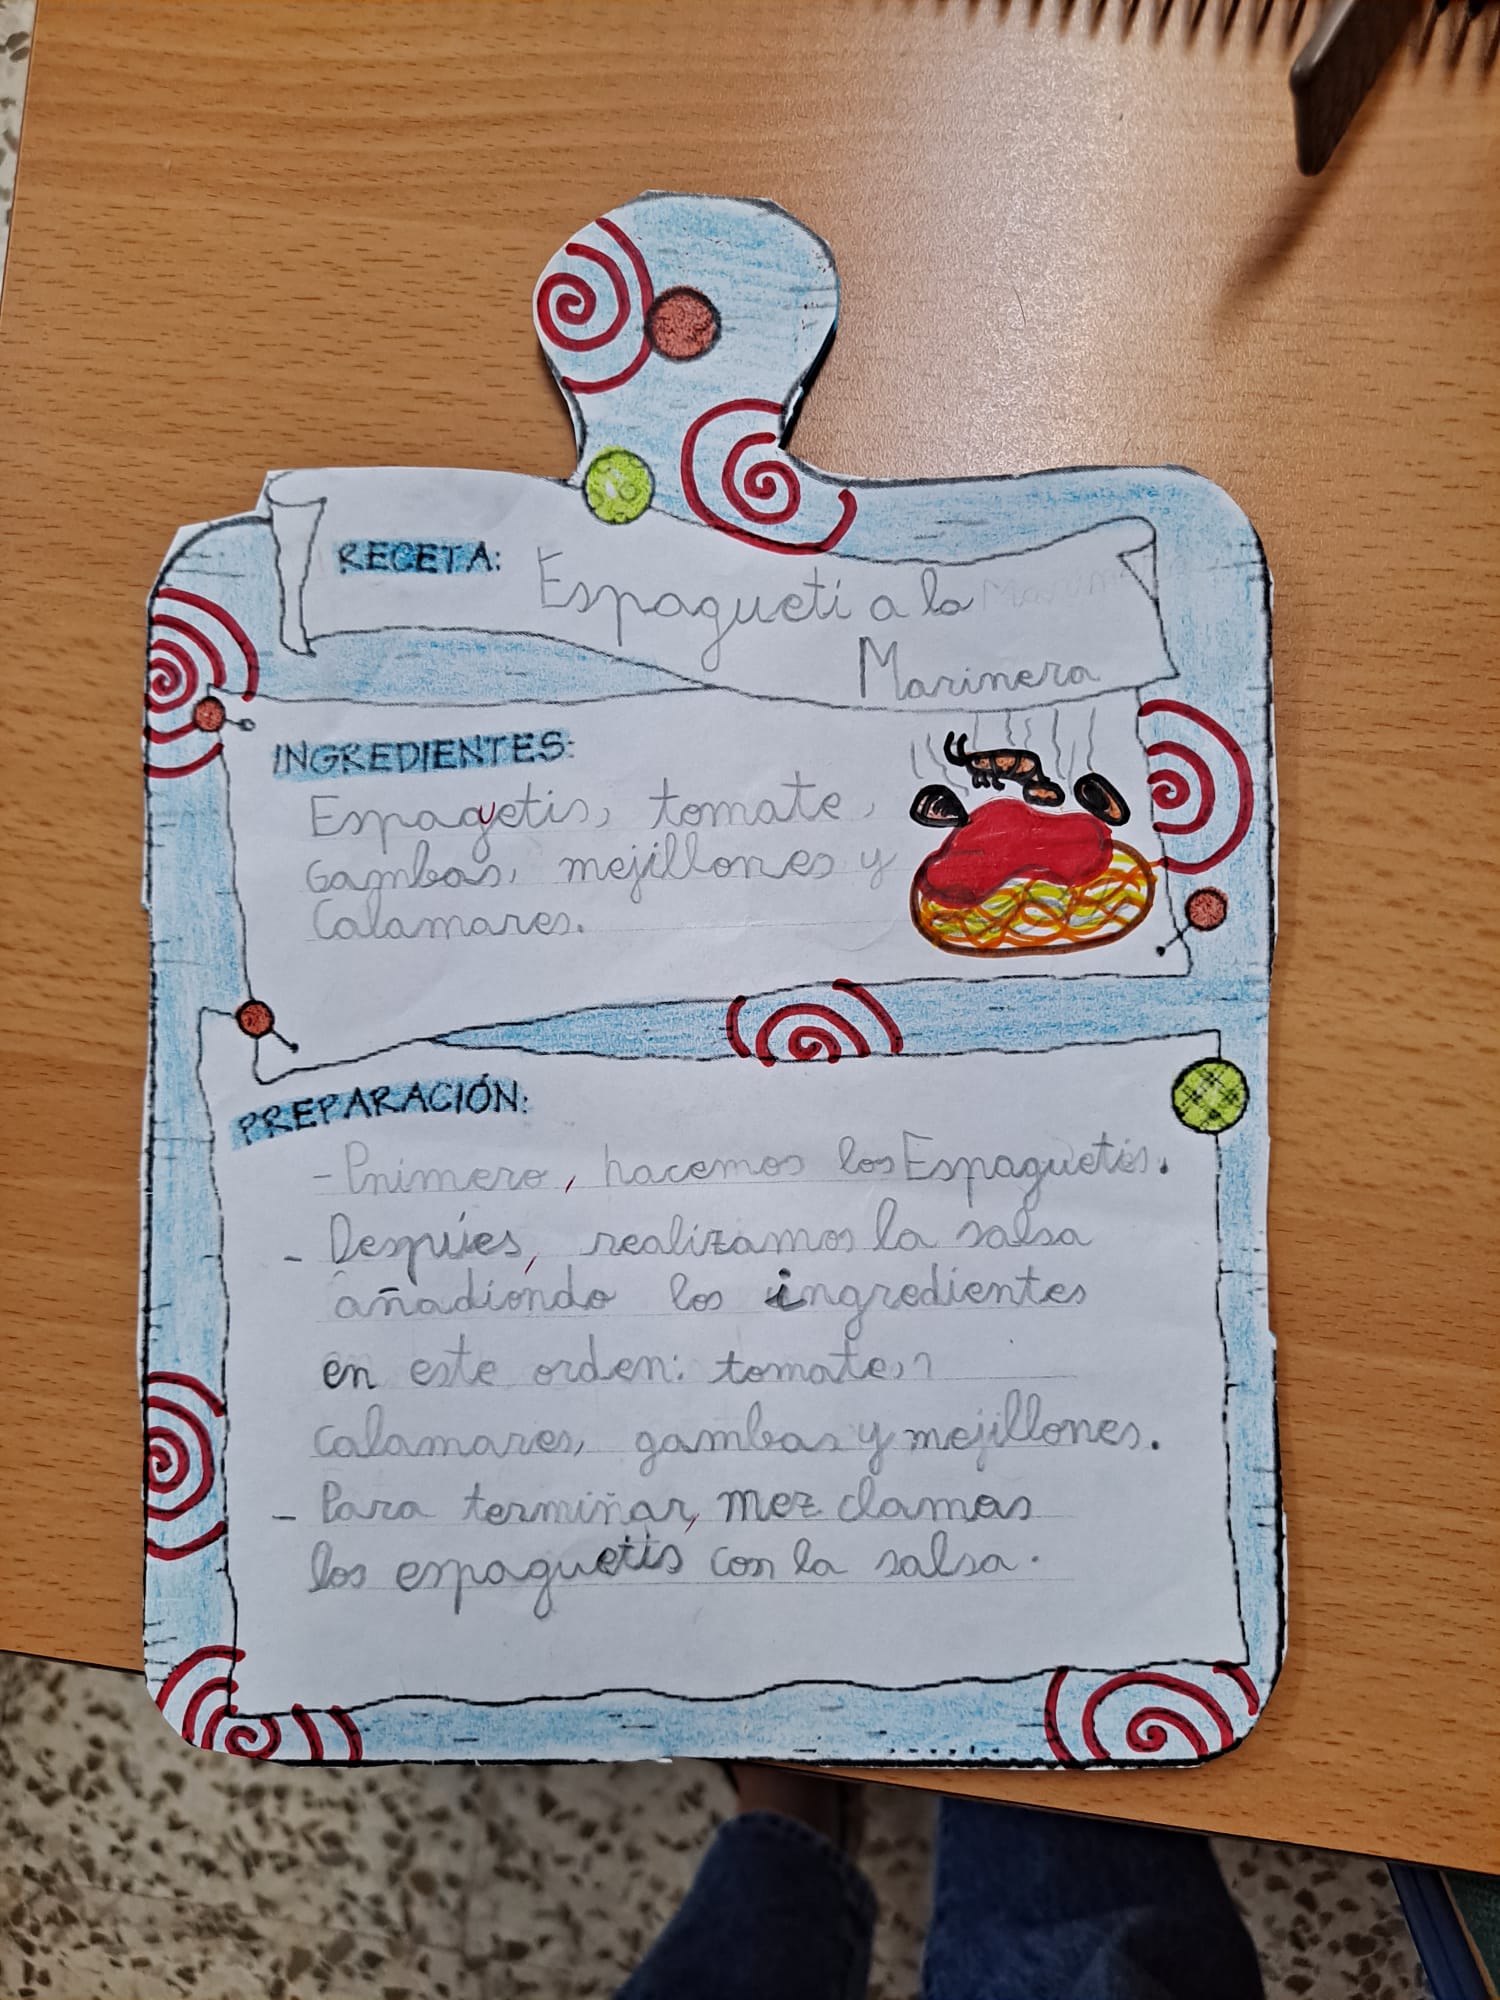 RECETA: Espagueti a la
Marinera
INGREDIENTES:
Espaguetis, tomate,
Gambas, mejillones y
Calamares.
PREPARACIÓN:
- Primero, hacemos los Espaguetis.
- Despúes, realizamos la salsa
añadiondo los ingredientes
en este orden: tomate,
calamares, gambas y mejillones.
- Para terminar, mezclamos
los espaguetis con la salsa.